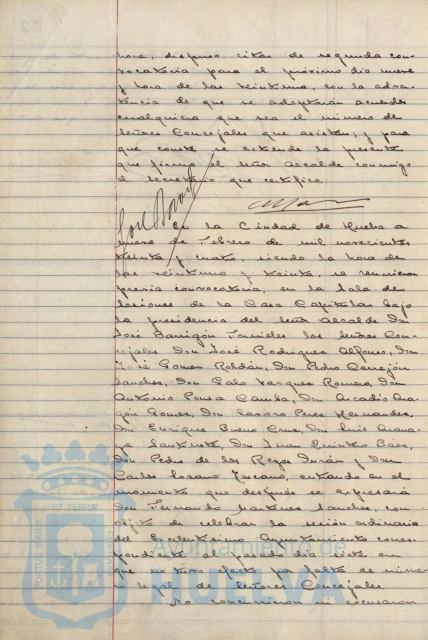 hora, dispuso citar de segunda con-
vocatoria para el próximo día nueve
y hora de las veintiuna, con la adver-
tencia de que se adoptarán acuerdos
cualquiera que sea el número de
señores Concejales que asistan; y para
que conste se extiende la presente
que firma el señor Alcalde conmigo
el Secretario que certifico.
En la Ciudad de Huelva a
nueve de Febrero de mil novecientos
treinta y cuatro, siendo la hora de
las veintiuna y treinta, se reunieron
previa convocatoria, en la Sala de
Sesiones de la Casa Capitular bajo
la presidencia del señor Alcalde Don
José Barrigón Fornieles los señores Con-
cejales Don José Rodríguez Alfonso, Don
José Gómez Roldán, Don Pedro Cerrejón
Sánchez, Don Galo Vázquez Romero, Don
Antonio Ponsa Camba, Don Arcadio Ara-
gón Gómez, Don Cesáreo Pérez Hernández,
Don Enrique Bueno Cruz, Don Luis
Don Juan Quintero Báez,
Don Pedro de los Reyes Durán y Don
Carlos Lozano Toscano, entrando en el
momento que después se expresará
Don Fernando Martínez Sánchez, con
objeto de celebrar la sesión ordinaria
del Excelentísimo Ayuntamiento corres-
pondiente al pasado día siete en
que no tuvo efecto por falta de núme-
ro legal de señores Concejales.
No concurrieron ni excusaron
PORTUS MARIS
ET TERRE
Ayuntamiento de
HUELVA